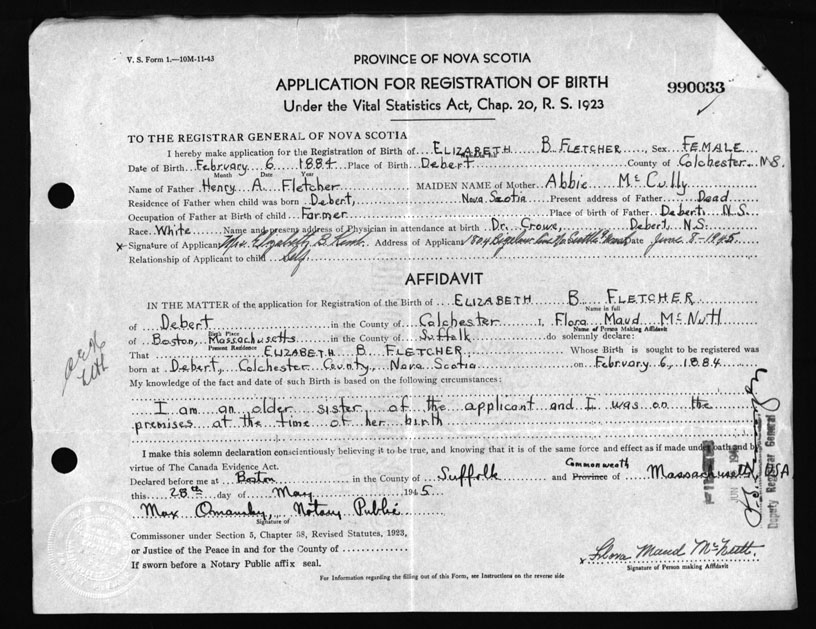 V. S. Form 1.—10M-11-43
PROVINCE OF NOVA SCOTIA
APPLICATION FOR REGISTRATION OF BIRTH
990033
Under the Vital Statistics Act, Chap. 20, R. S. 1923
TO THE REGISTRAR GENERAL OF NOVA SCOTIA
I hereby make application for the Registration of Birth of ELIZABETH B FLETCHER, Sex FEMALE
Date of Birth February 6 1884 Place of Birth Debert County of Colchester N.S.
Month Date Year
Name of Father Henry A. Fletcher MAIDEN NAME of Mother Abbie McCully
Residence of Father when child was born Debert, Nova Scotia Present address of Father Dead
Occupation of Father at Birth of child Farmer Place of birth of Father Debert, N.S.
Race White Name and present address of Physician in attendance at birth Dr. Crowe, Debert, N.S.
x Signature of Applicant Mrs. Elizabeth B. Address of Applicant 1804 Bigelow Ave No Seattle Date June 8-1945
Relationship of Applicant to child self
AFFIDAVIT
IN THE MATTER of the application for Registration of the Birth of ELIZABETH B FLETCHER
Name in full
of Debert in the County of Colchester I, Flora Maud McNutt
Birth Place
Name of Person Making Affidavit
of Boston, Massachusetts in the County of Suffolk do solemnly declare:
Present Residence
That ELIZABETH B FLETCHER Whose Birth is sought to be registered was
born at Debert, Colchester County, Nova Scotia on February 6, 1884
My knowledge of the fact and date of such Birth is based on the following circumstances:
I am an older sister of the applicant and I was on the
premises at the time of her birth
I make this solemn declaration conscientiously believing it to be true, and knowing that it is of the same force and effect as if made under oath and by
virtue of The Canada Evidence Act.
Commonwealth
Declared before me at Boston in the County of Suffolk and Province of Massachusetts, USA
this 28th day of May 1945
Max Notary Public
Signature of
Commissioner under Section 5, Chapter 38, Revised Statutes, 1923,
or Justice of the Peace in and for the County of
If sworn before a Notary Public affix seal.
x Flora Maud McNutt
Signature of Person making Affidavit
For Information regarding the filling out of this Form, see Instructions on the reverse side
Deputy Registrar General